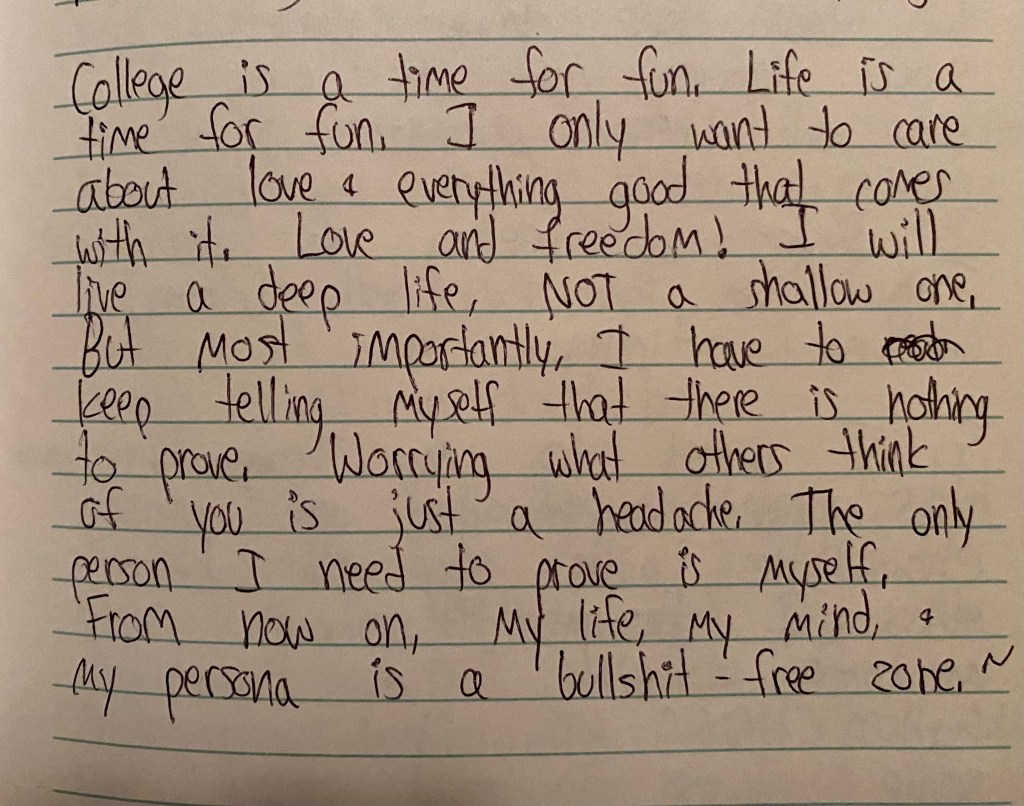 College is a time for fun. Life is a
time for fun. I only want to care
about love & everything good that comes
with it. Love and freedom! I will
live a deep life, NOT a shallow one.
But most importantly, I have to
keep telling myself that there is nothing
to prove. Worrying what others think
of you is just a headache. The only
person I need to prove is myself.
From now on, my life, my mind, &
my persona is a bullshit-free zone. ~